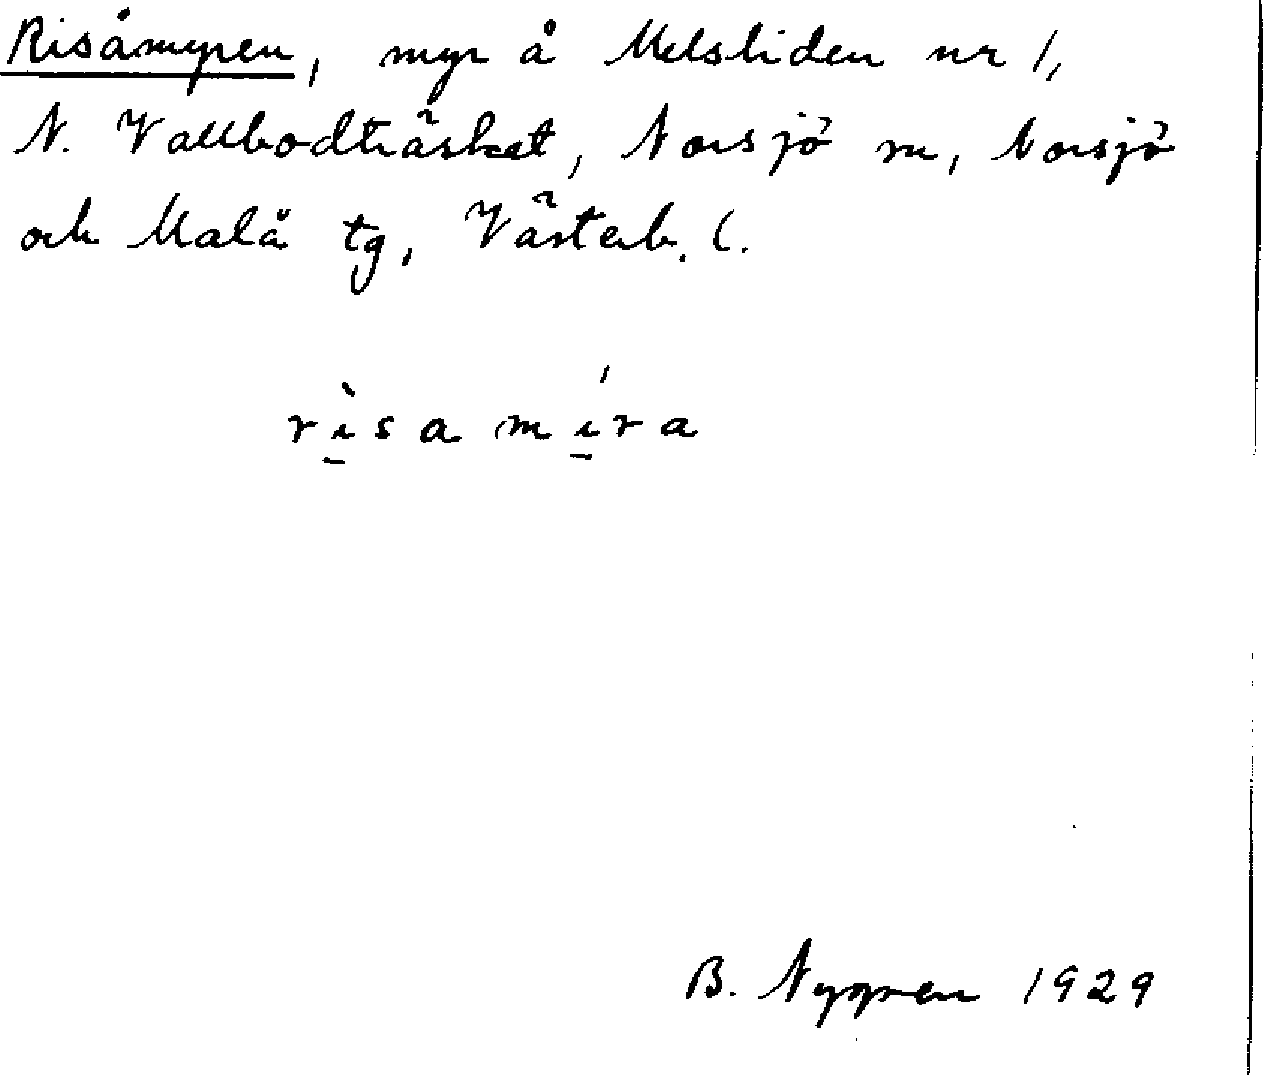 Risåmyren, myr å Melsliden nr 1,
N. Vallbodträsket, Norsjö sn, Norsjö
och Malå tg, Västerb. l.
rìsa míra
B. Nygren 1929